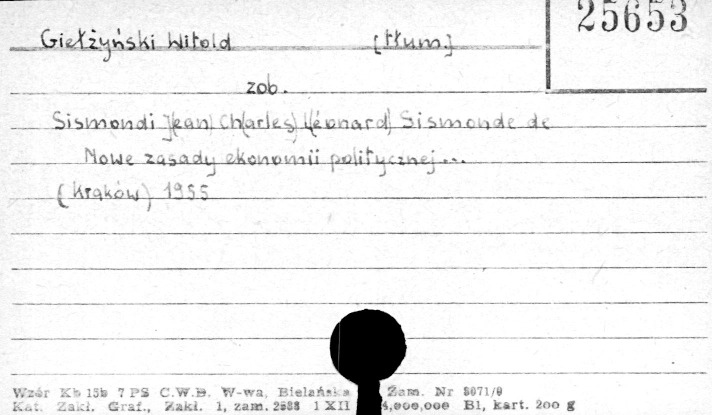 25653
Giełżyński Witold [tłum.]
zob.
Sismondi J(ean) Ch(arles) L(éonard) Sismonde de
Nowe zasady ekonomii politycznej...
(Kraków) 1955
Wzór Kb 15b 7 PS C.W.D. W-wa, Bielańska Zam. Nr 8071/9
Kat. Zakł. Graf., Zakł. 1, zam. 2588 1 XII 4,000,000 B1, kart. 200 g